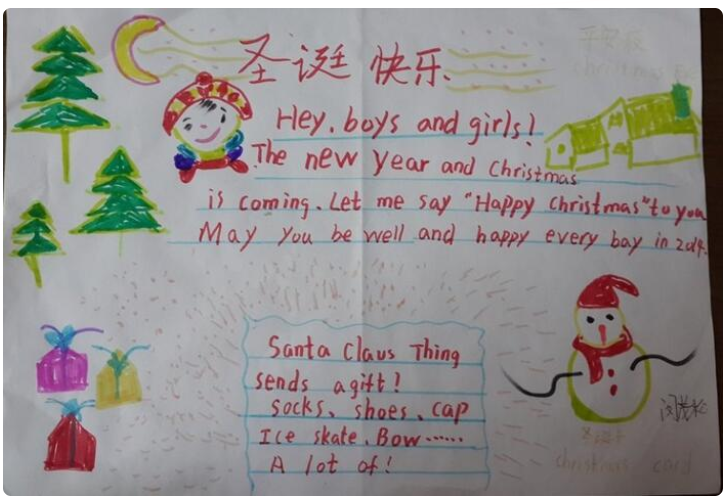 圣诞快乐
平安夜
Hey, boys and girls!
The new year and Christmas
is coming. Let me say "Happy christmas" to you
May you be well and happy every bay in 2014.
Santa Claus Thing
sends a gift!
socks、shoes、cap
Ice skate、Bow……
A lot of!
christmas card